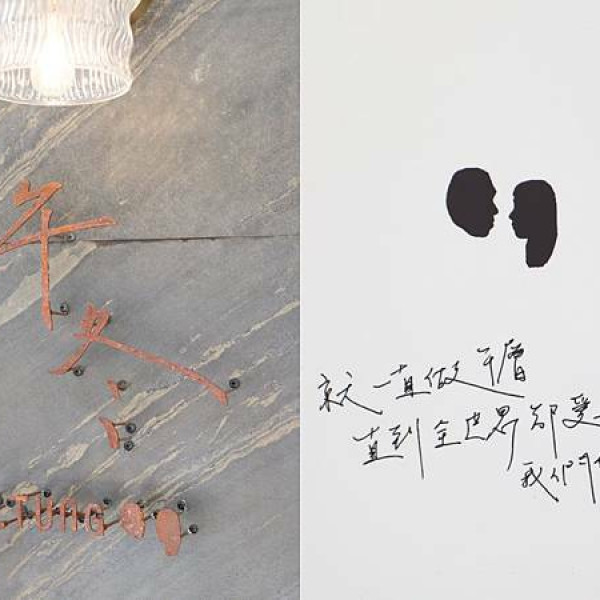 午
冬
TUNG
就一直做千層
直到全世界都愛
我們